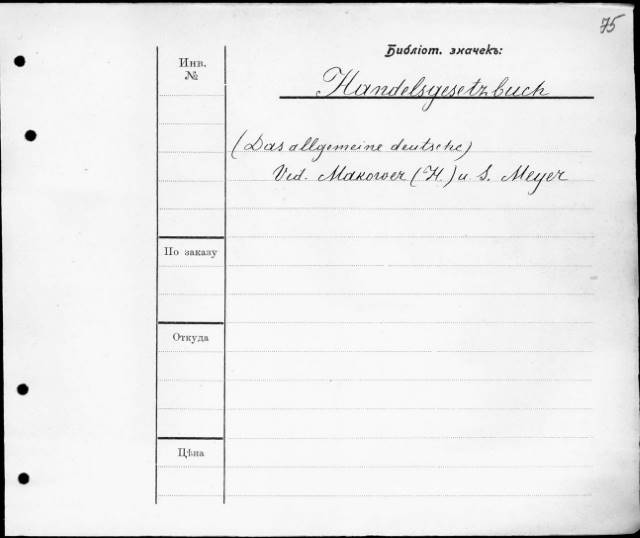 75
Библіот. значекъ:
Инв.
№
Handelsgesetzbuch
(Das allgemeine deutsche)
Vid. Makower (H.) u. S. Meyer
По заказу
Откуда
Цѣна